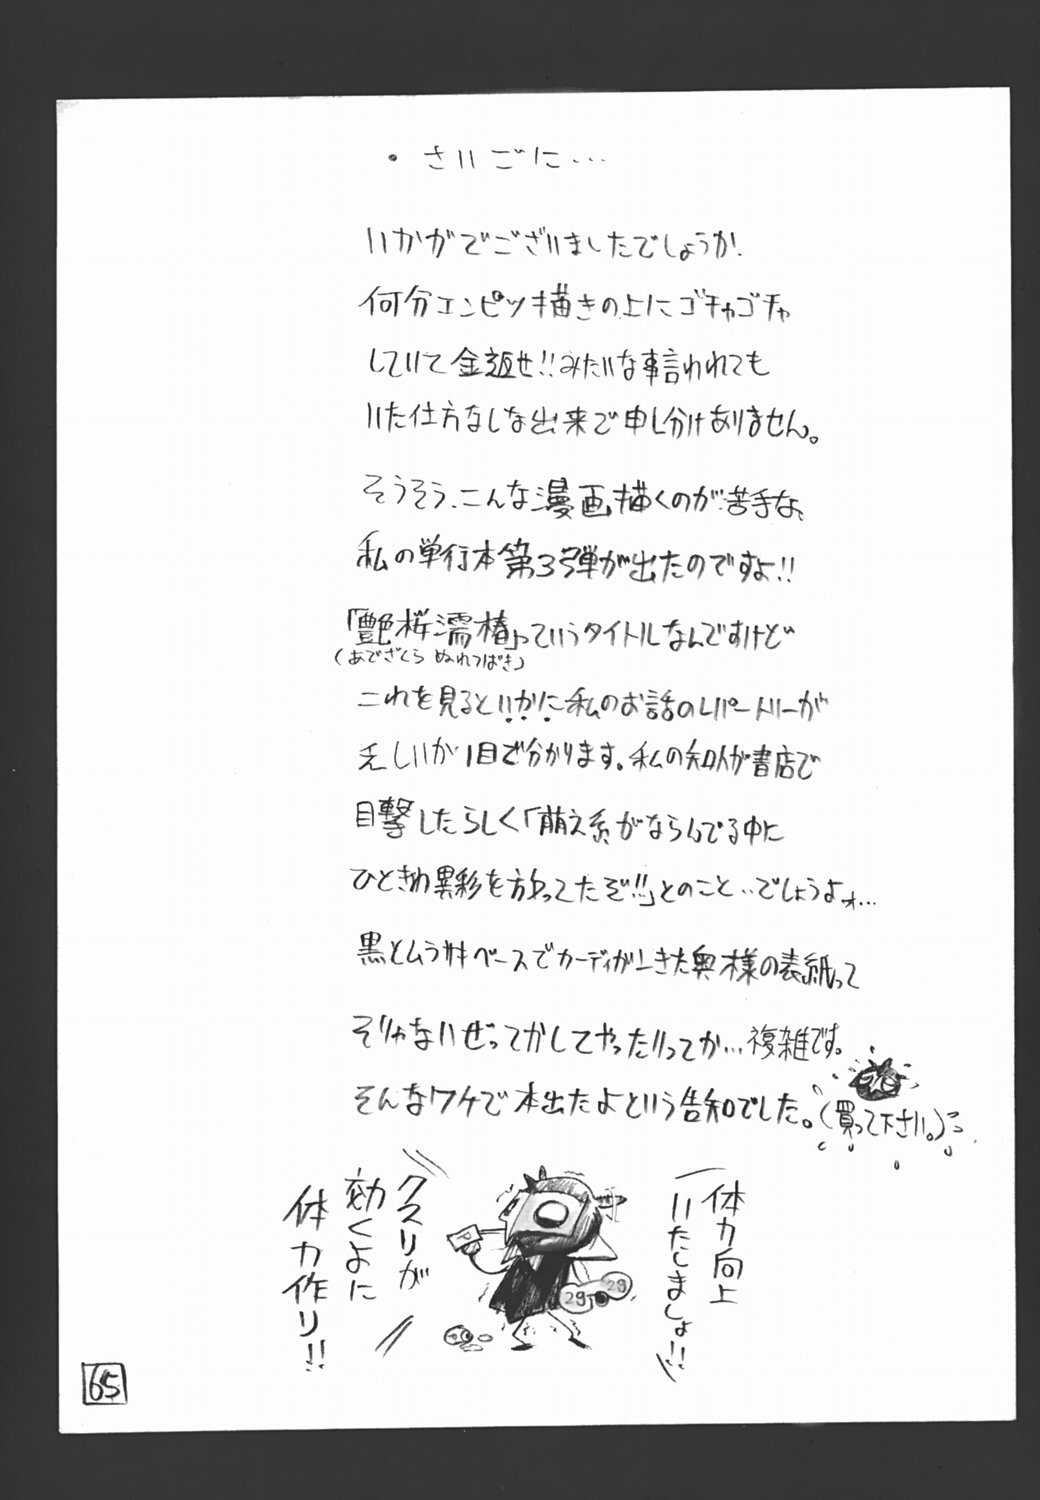 ・さいごに…
いかがでございましたでしょうか.
何分エンピツ描きの上にゴチャゴチャ
していて金返せ!!みたいな事言われても
いた仕方なしな出来で申し分けありません。
そうそう、こんな漫画描くのが苦手な、
私の単行本第3弾が出たのですよ!!
「艶桜濡椿」っていうタイトルなんですけど
(あでざくら ぬれつばき)
これを見るといかに私のお話のレパートリーが
乏しいか1目で分かります。私の知人が書店で
目撃したらしく「萌え系がならんでる中に
ひときわ異彩を放ってたぞ!!」とのこと‥でしょうよォ…
黒とムラサキベースでカーディガンきた奥様の表紙って
そりゃないぜってかしてやったりってか…複雑です。
そんなワケで本出たよという告知でした。(買って下さい。)
体力向上
いたしましょ!!
クスリが
効くよに
体力作り!!
29
29
65